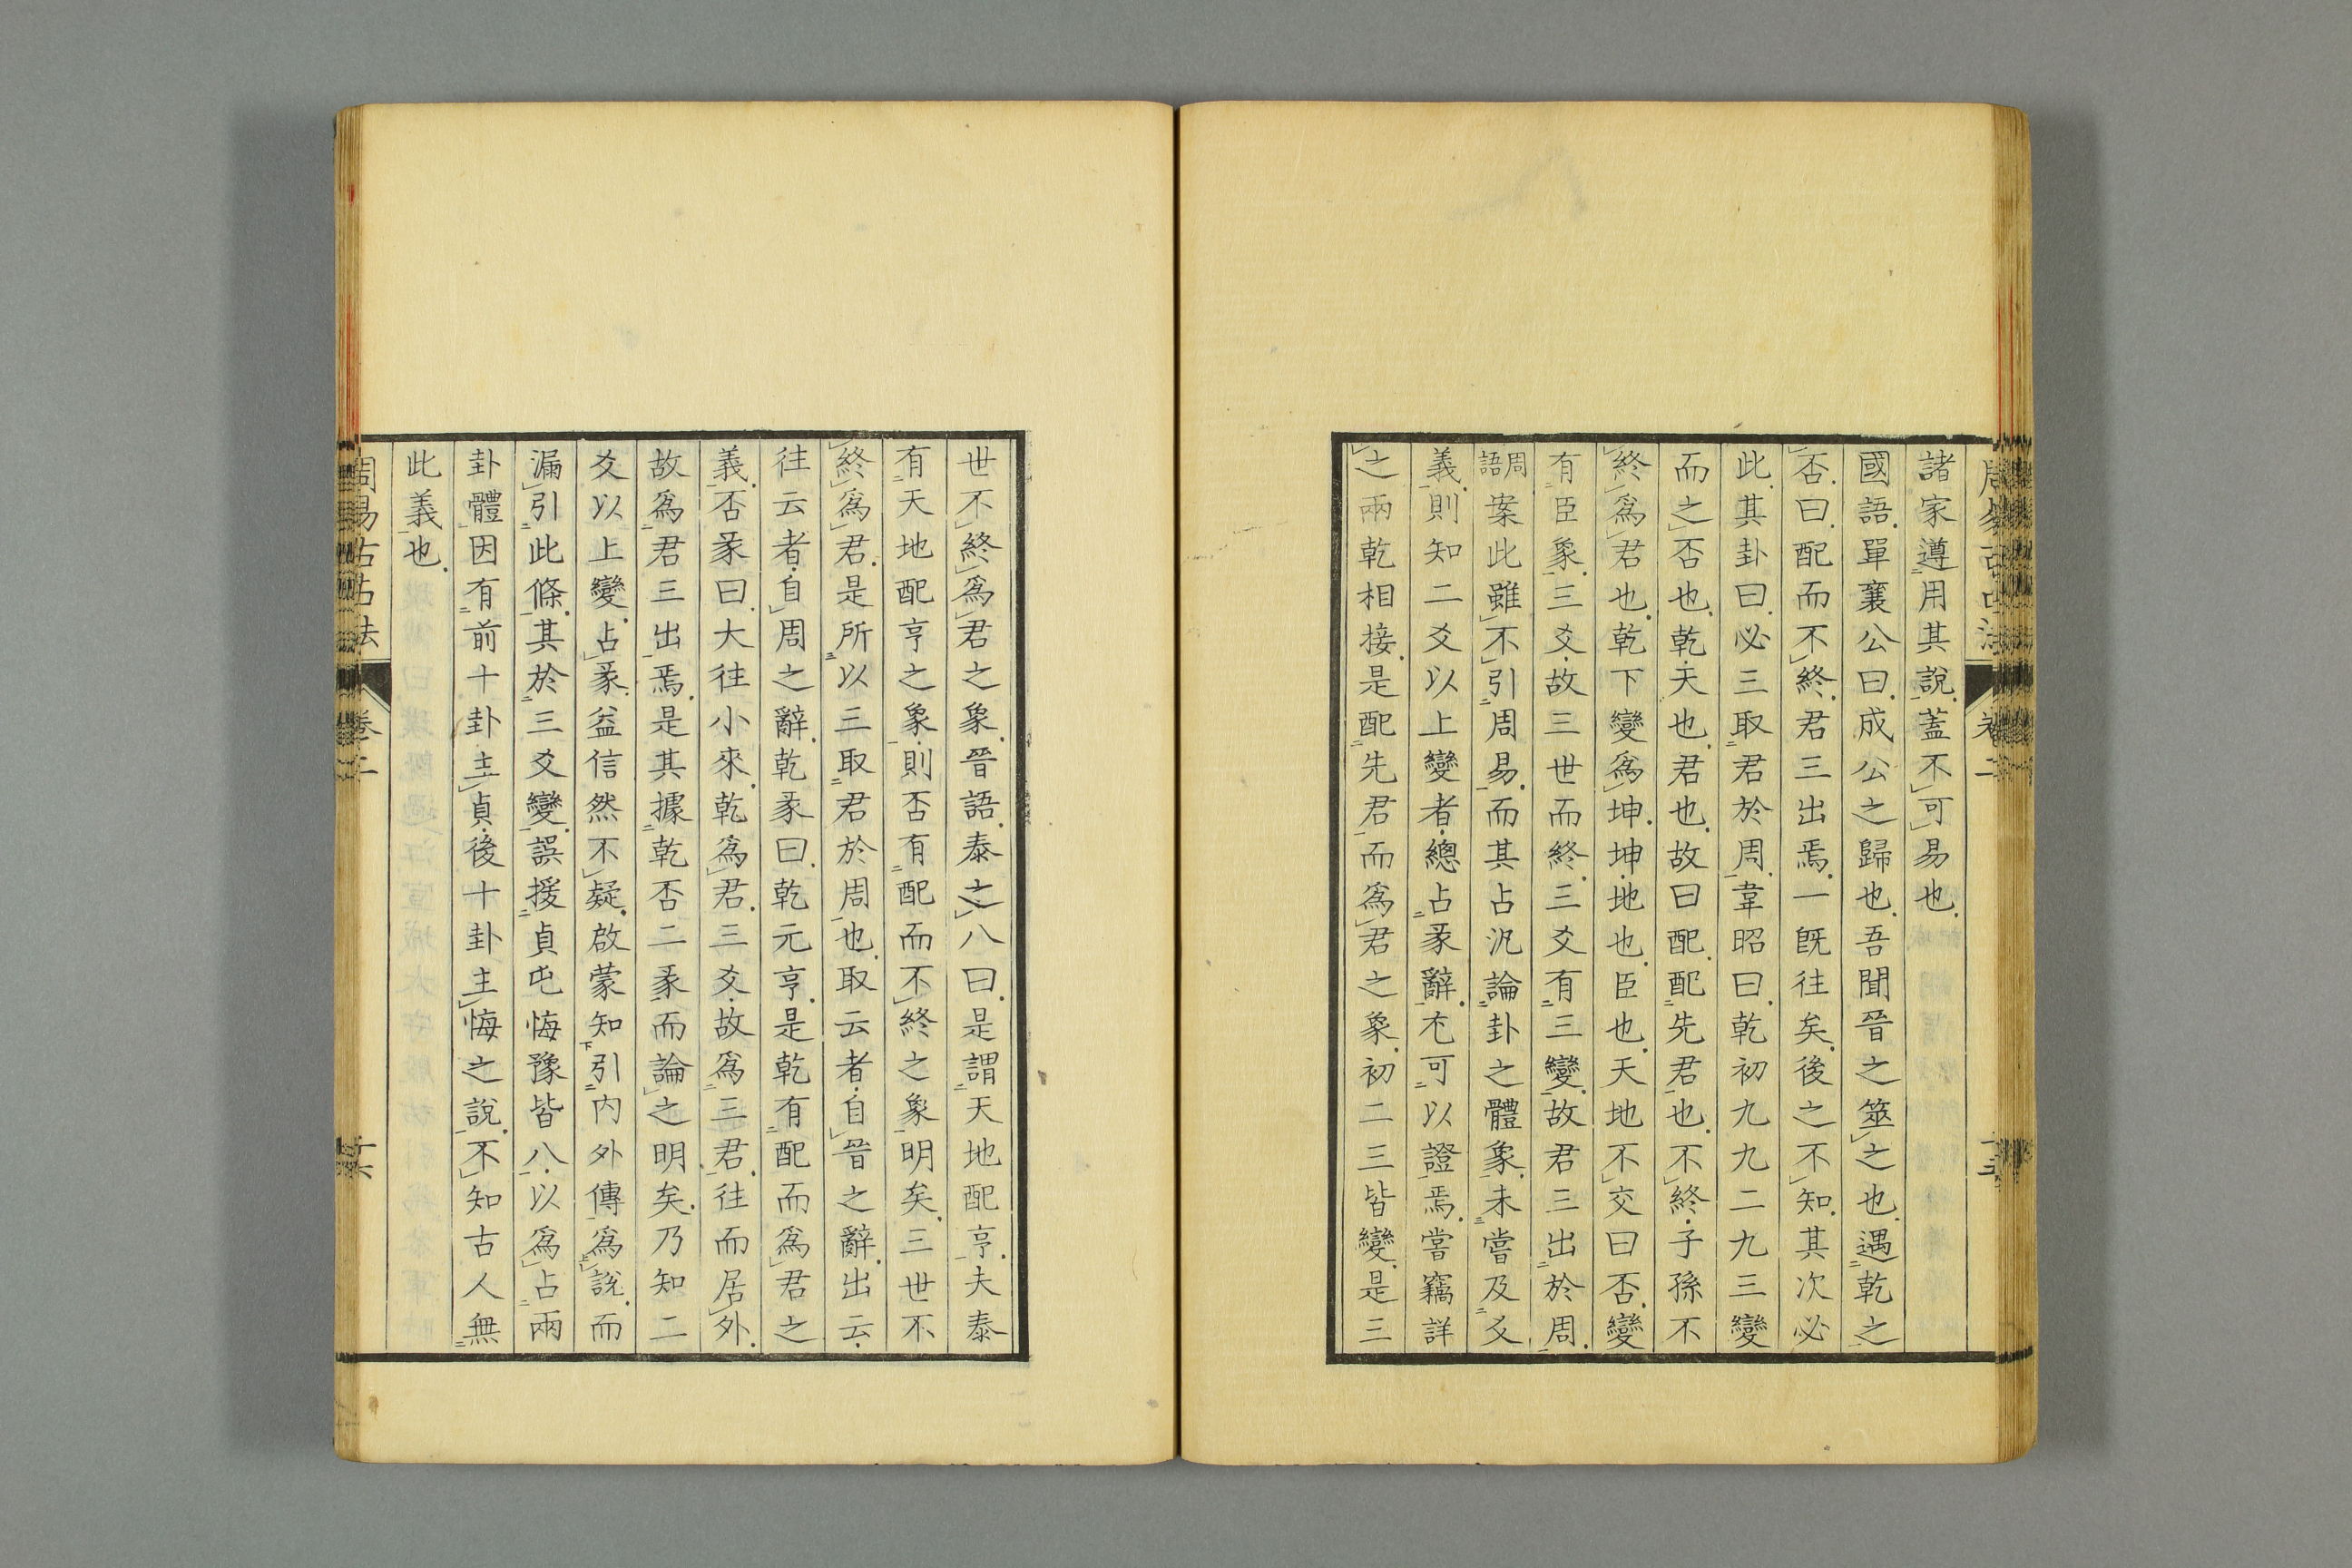 諸家遵用其說蓋不可易也
國語單襄公曰成公之歸也吾聞晉之筮之也遇乾之
否曰配而不終君三出焉一旣往矣後之不知其次必
此其卦曰必三取君於周韋昭曰乾初九九二九三變
而之否也乾天也君也故曰配配先君也不終子孫不
終爲君也乾下變爲坤坤地也臣也天地不交曰否變
有臣象三爻故三世而終三爻有三變故君三出於周
周語案此雖不引周易而其占汎論卦之體象未嘗及爻
義則知二爻以上變者總占彖辭尤可以證焉嘗竊詳
之兩乾相接是配先君而爲君之象初二三皆變是三
世不終爲君之象晉語泰之八曰是謂天地配亨夫泰
有天地配亨之象則否有配而不終之象明矣三世不
終爲君是所以三取君於周也取云者自晉之辭出云
往云者自周之辭乾彖曰乾元亨是乾有配而爲君之
義否彖曰大往小來乾爲君三爻故爲三君往而居外
故爲君三出焉是其據乾否二彖而論之明矣乃知二
爻以上變占彖益信然不疑啟蒙知引內外傳爲說而
漏引此條其於三爻變誤援貞屯悔豫皆八以爲占兩
卦體因有前十卦主貞後十卦主悔之說不知古人無
此義也
周易古占法 卷二